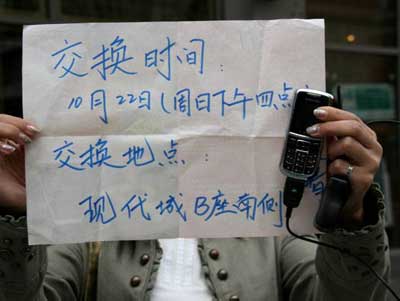 交换时间：
10月22日（周日下午四点
交换地点：
现代城B座南侧